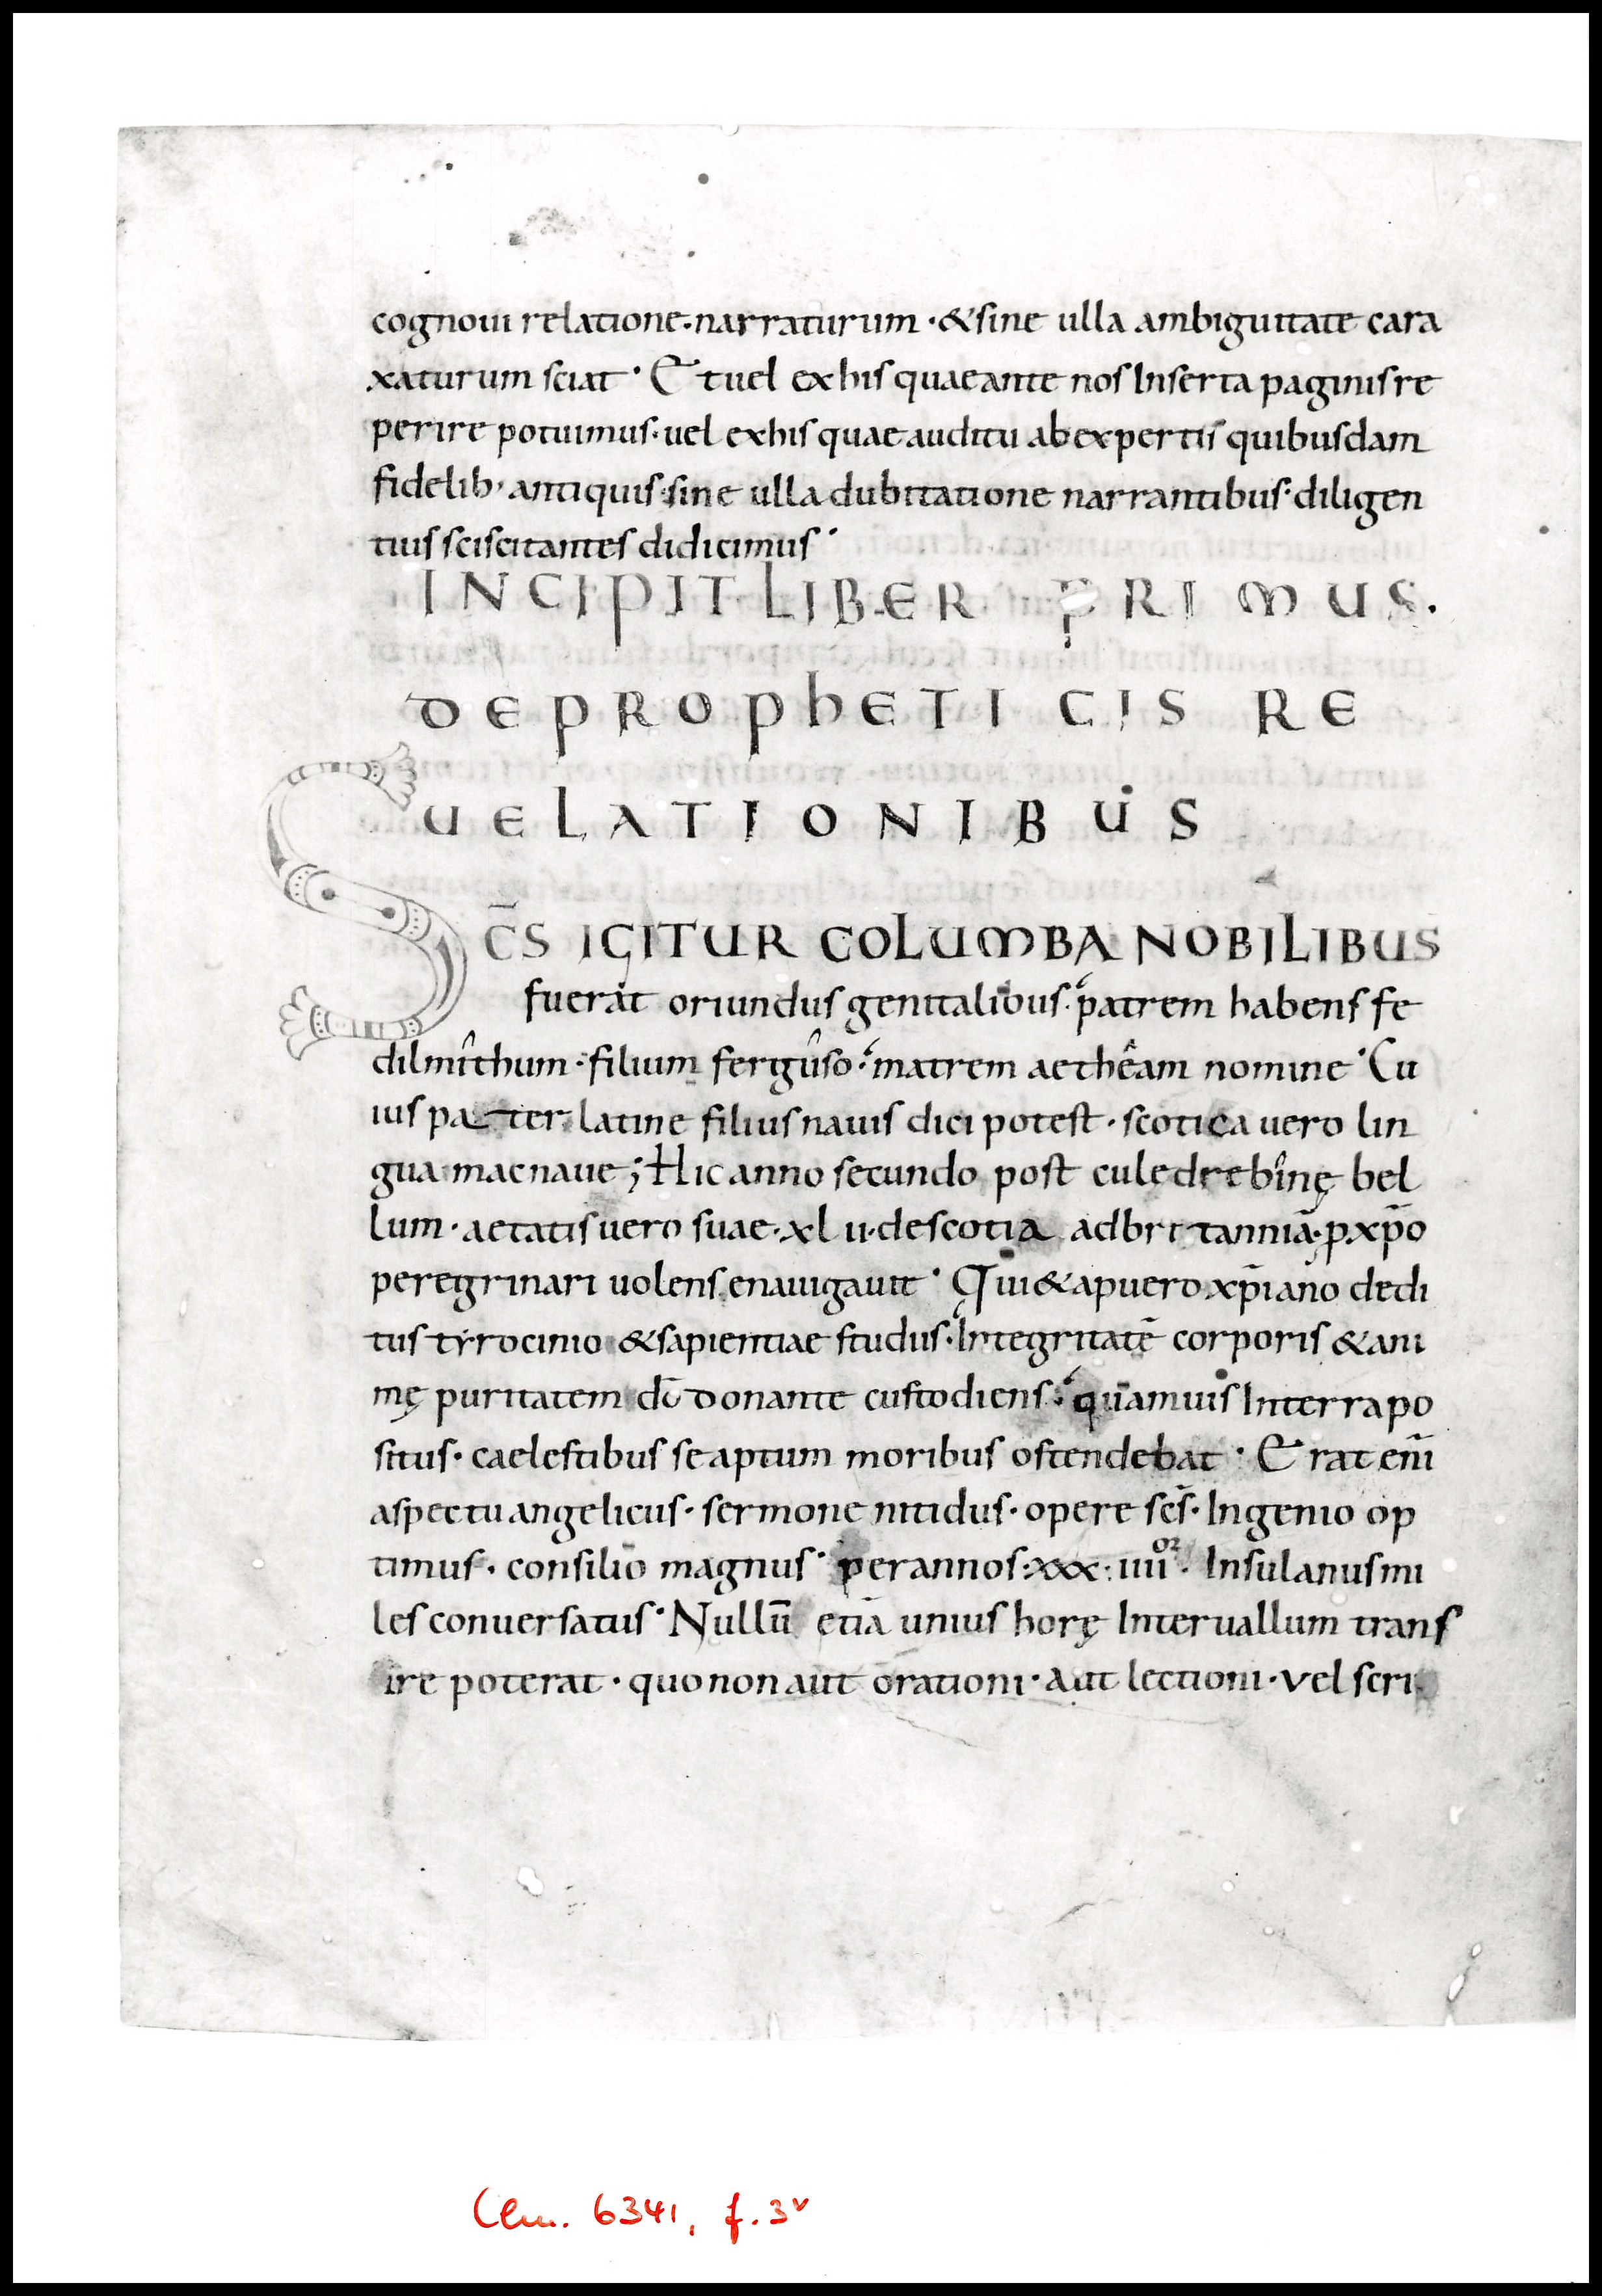 cognoui relatione·narraturum·&sine ulla ambiguitate cara
xaturum sciat· Et uel exhis quae ante nos Inserta paginis re
perire potuimus·uel exhis quae auditu abexpertis quibusdam
fidelib· antiquis·sine ulla dubitatione narrantibus·diligen
tius sciscitantes didicimus·
INCIPIT LIBER PRIMUS.
DE PROPHETICIS RE
UELATIONIBUS
SC̄S IGITUR COLUMBA NOBILIBUS
fuerat oriundus genitalibus·patrem habens fe
dilmîthum·filium fergûso·matrem aethêam nomine·Cu
ius pater latine filius nauis dici potest·scotica uero lin
gua macnaue; Hic anno secundo post culedrebînę bel
lum·aetatis uero suae·xlii·descotia adbrittanniā·p xp̄o
peregrinari uolens enauigauit·Qui&apuero xp̄iano dedi
tus tyrocinio &sapientiae studiis·Integritatē corporis &ani
mę puritatem dō donante custodiens·quamuis Interra po
situs·caelestibus se aptum moribus ostendebat·Erat eni̅
aspectu angelicus·sermone nitidus·opere sc̄s·Ingenio op
timus·consilio magnus·perannos·xxx·iiii^or·Insulanus mi
les conuersatus·Nullū etiā unius horę Interuallum trans
ire poterat·quo non aut orationi·aut lectioni·vel scri
Clm. 6341, f. 3v